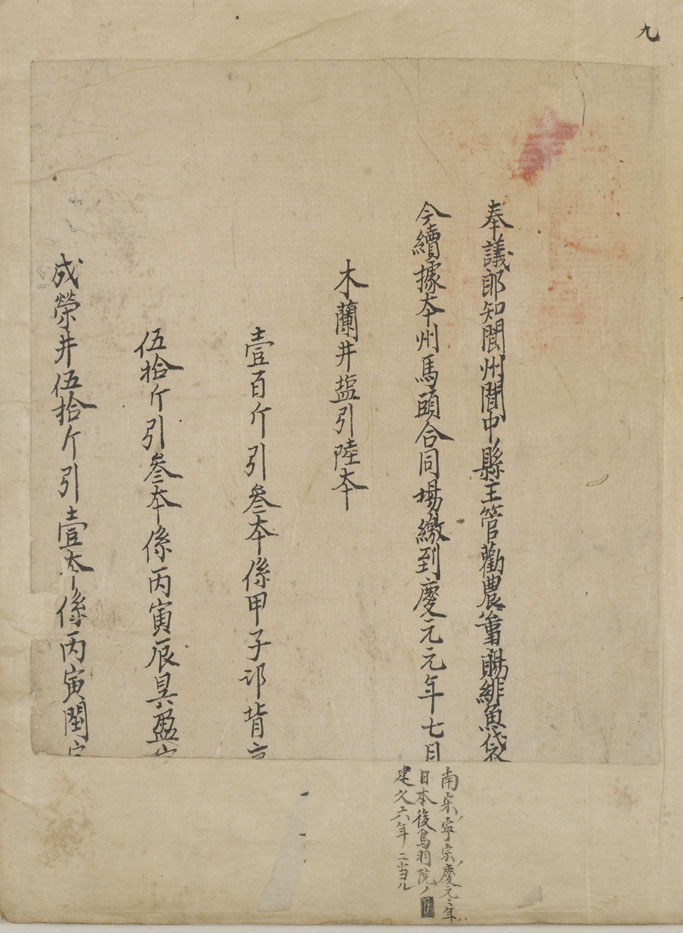 九
奉議郎知閬州閬中縣主管勸農事賜緋魚袋
今續據本州馬頭合同場繳到慶元元年七月
木蘭井塩引陸夲
壹百斤引叁夲係甲子邛背
伍拾斤引叁夲係丙寅辰具盈
成榮井伍拾斤引壹夲係丙寅閏
南宋ノ寧宗ノ慶元々年ハ
日本後鳥羽院ノ
建久六年ニ当ル